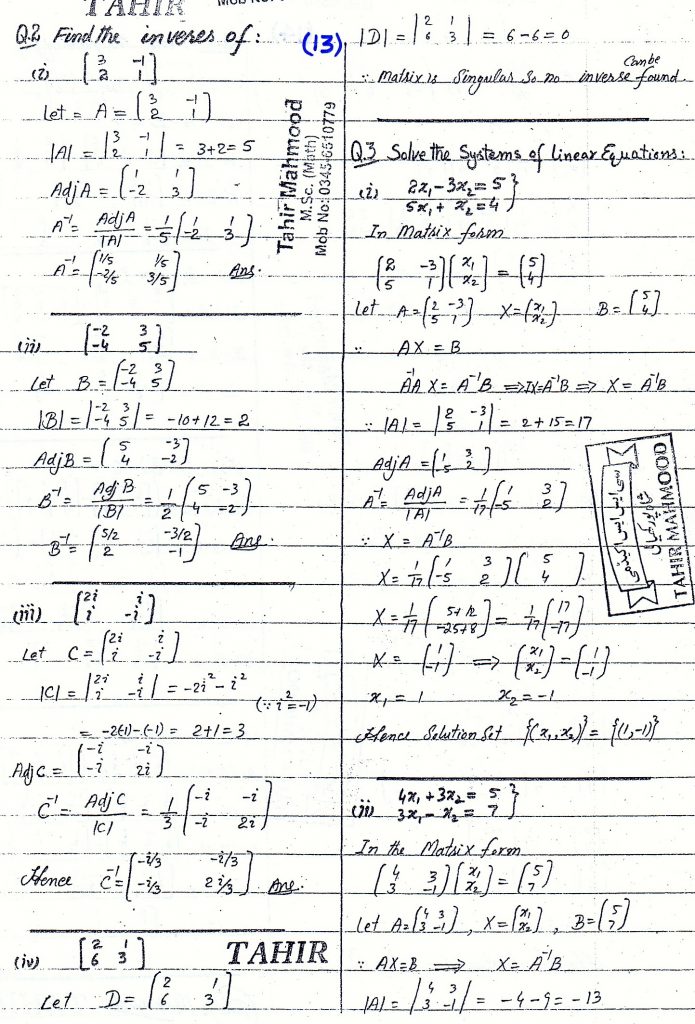 TAHIR
Q.2 Find the inverses of: (13)
(i) [3 -1; 2 1]
Let = A = [3 -1; 2 1]
|A| = |3 -1; 2 1| = 3+2 = 5
Adj A = [1 1; -2 3]
A⁻¹ = Adj A / |A| = 1/5 [1 1; -2 3]
A⁻¹ = [1/5 1/5; -2/5 3/5] Ans.
Tahir Mahmood
M.Sc. (Math)
Mob No: 0345-6510779
(ii) [-2 3; -4 5]
Let B = [-2 3; -4 5]
|B| = |-2 3; -4 5| = -10+12 = 2
Adj B = [5 -3; 4 -2]
B⁻¹ = Adj B / |B| = 1/2 [5 -3; 4 -2]
B⁻¹ = [5/2 -3/2; 2 -1] Ans.
(iii) [2i i; i -i]
Let C = [2i i; i -i]
|C| = |2i i; i -i| = -2i² - i² (∵ i² = -1)
= -2(-1) -(-1) = 2+1 = 3
Adj C = [-i -i; -i 2i]
C⁻¹ = Adj C / |C| = 1/3 [-i -i; -i 2i]
Hence C⁻¹ = [-i/3 -i/3; -i/3 2i/3] Ans.
(iv) [2 1; 6 3] TAHIR
Let D = [2 1; 6 3]
|D| = |2 1; 6 3| = 6-6 = 0
∵ Matrix is Singular So no inverse Can be found.
Q.3 Solve the Systems of Linear Equations:
(i) 2x₁ - 3x₂ = 5
5x₁ + x₂ = 4 }
In Matrix form
[2 -3; 5 1] [x₁; x₂] = [5; 4]
Let A = [2 -3; 5 1] X = [x₁; x₂] B = [5; 4]
∵ AX = B
A⁻¹A X = A⁻¹B ⟹ IX = A⁻¹B ⟹ X = A⁻¹B
∵ |A| = |2 -3; 5 1| = 2+15 = 17
Adj A = [1 3; -5 2]
A⁻¹ = Adj A / |A| = 1/17 [1 3; -5 2]
∵ X = A⁻¹B
X = 1/17 [1 3; -5 2] [5; 4]
X = 1/17 [5+12; -25+8] = 1/17 [17; -17]
X = [1; -1] ⟹ [x₁; x₂] = [1; -1]
x₁ = 1 x₂ = -1
Hence Solution Set {(x₁, x₂)} = {(1, -1)}
TAHIR MAHMOOD
(ii) 4x₁ + 3x₂ = 5
3x₁ - x₂ = 7 }
In the Matrix form
[4 3; 3 -1] [x₁; x₂] = [5; 7]
Let A = [4 3; 3 -1], X = [x₁; x₂], B = [5; 7]
∵ AX = B ⟹ X = A⁻¹B
|A| = |4 3; 3 -1| = -4-9 = -13